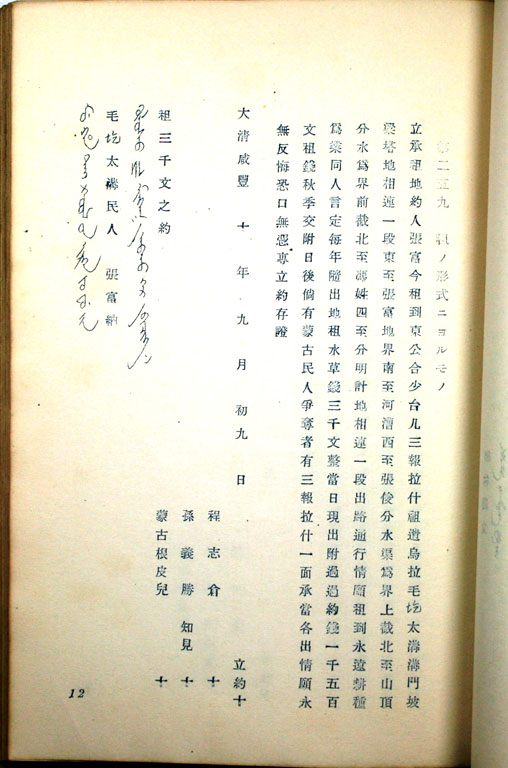 二五九 ノ形式ニヨルモノ
立承租地約人張富今租到東公合少台几三報拉什祖遺烏拉毛圪太溝溝門坡
梁塔地相連一段東至張富地界南至河漕西至張俊分水渠為界上截北至山頂
分水為界前截北至薄姓四至分明計地相連一段出路通行情願租到永遠耕種
為業同人言定每年隨出地租水草錢三千文整當日現出附過過約錢一千五百
文租錢秋季交附日後倘有蒙古民人爭奪者有三報拉什一面承當各出情願永
無反悔恐口無憑專立約存證
大清咸豐十年九月初九日 立約十
程志倉 十
孫義勝 知見 十
蒙古根皮兒 十
租三千文之約
毛圪太溝民人 張富納
12